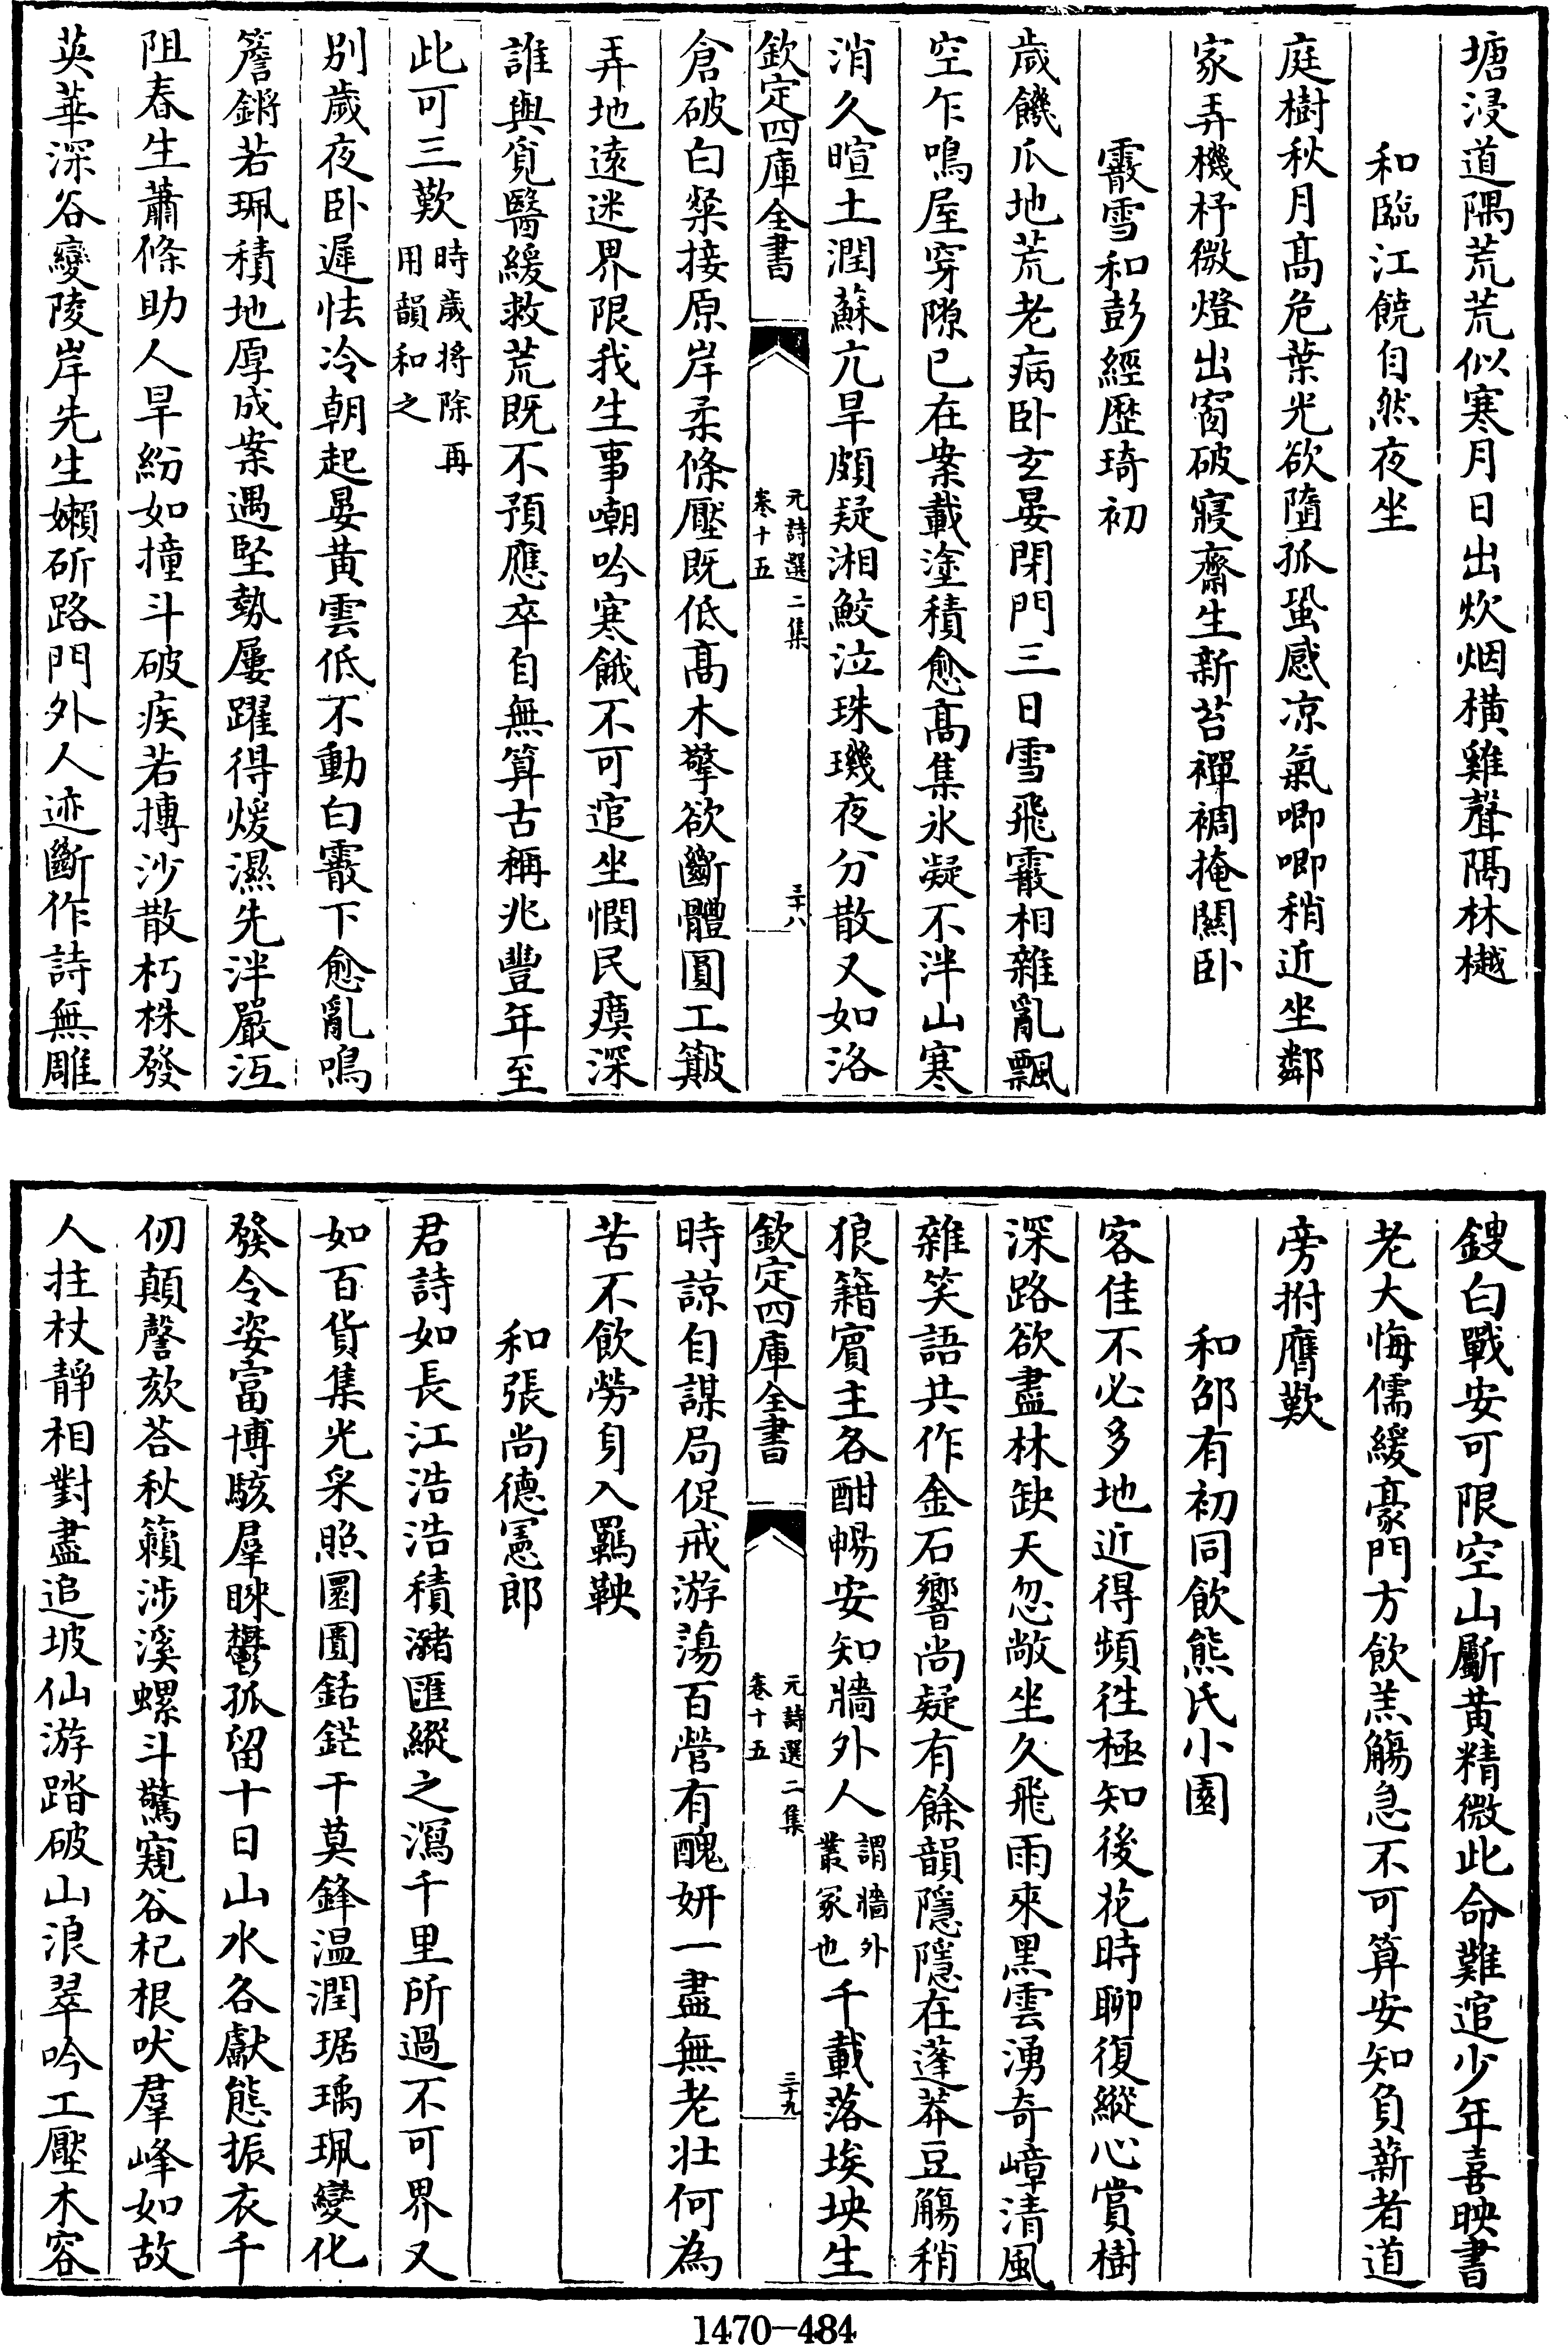 塘浸道隅荒荒似寒月日出炊烟橫雞聲隔林樾
和臨江饒自然夜坐
庭樹秋月高危葉光欲墮孤蛩感凉氣唧唧稍近坐鄰
家弄機杼微燈出窗破寢齋生新苔襌裯掩關卧
霰雪和彭經歷琦初
歲饑瓜地荒老病卧玄晏閉門三日雪飛霰相雜亂飄
空乍鳴屋穿隙已在案載塗積愈高集氷凝不泮山寒
消久暄土潤蘇亢旱頗疑湘鮫泣珠璣夜分散又如洛
欽定四庫全書
元詩選二集
卷十五
三十八
倉破白粲接原岸柔條壓既低高木擎欲斷體圓工簸
弄地遠迷界限我生事嘲吟寒餓不可逭坐憫民瘼深
誰與覓醫緩救荒既不預應卒自無算古稱兆豐年至
此可三歎時歲將除再
用韻和之
別歲夜卧遲怯冷朝起晏黃雲低不動白霰下愈亂鳴
簷鏘若珮積地厚成案遇堅勢屢躍得煖濕先泮嚴沍
阻春生蕭條助人旱紛如撞斗破疾若摶沙散朽株發
英華深谷變陵岸先生嬾斫路門外人迹斷作詩無雕
鎪白戰安可限空山斸黃精微此命難逭少年喜映書
老大悔儒緩豪門方飲羔觴急不可算安知負薪者道
旁拊膺歎
和邵有初同飲熊氏小園
客佳不必多地近得頻徃極知後花時聊復縱心賞樹
深路欲盡林缺天忽敞坐久飛雨來黑雲湧奇嶂清風
雜笑語共作金石響尚疑有餘韻隱隱在蓬莽豆觴稍
狼籍賓主各酣暢安知牆外人謂牆外
叢冢也千載落埃坱生
欽定四庫全書
元詩選二集
卷十五
三十九
時諒自謀局促戒游蕩百營有醜妍一盡無老壯何為
苦不飲勞身入羈鞅
和張尚德憲郎
君詩如長江浩浩積瀦匯縱之瀉千里所過不可界又
如百貨集光采照圜闠銛鋩干莫鋒温潤琚瑀珮變化
發令姿富博駭羣睞鬱孤留十日山水各獻態振衣千
仞顛謦欬荅秋籟涉溪螺斗驚窺谷杞根吠羣峰如故
人拄杖靜相對盡追坡仙游踏破山浪翠吟工壓木客
1470-484